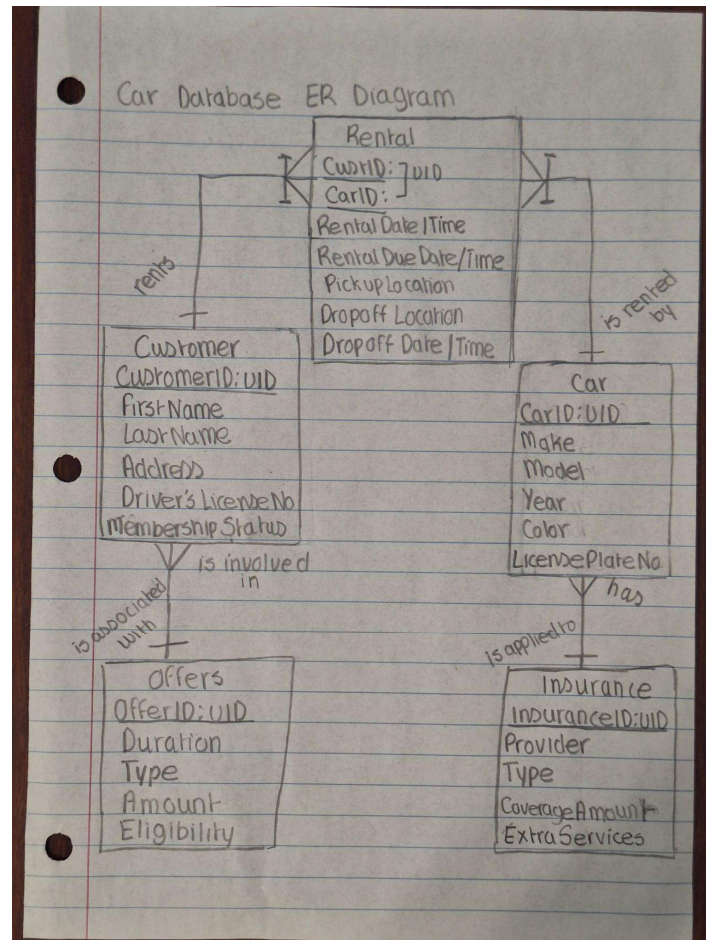 Car Database ER Diagram
Rental
CustID: ] UID
CarID:
Rental Date/Time
Rental Due Date/Time
Pickup Location
Dropoff Location
Dropoff Date/Time
rents
is rented
by
Customer
CustomerID: UID
FirstName
LastName
Address
Driver's LicenseNo
Membership Status
Car
CarID: UID
Make
Model
Year
Color
LicensePlateNo
is involved
in
is associated
with
has
is applied to
Offers
OfferID: UID
Duration
Type
Amount
Eligibility
Insurance
InsuranceID: UID
Provider
Type
CoverageAmount
ExtraServices